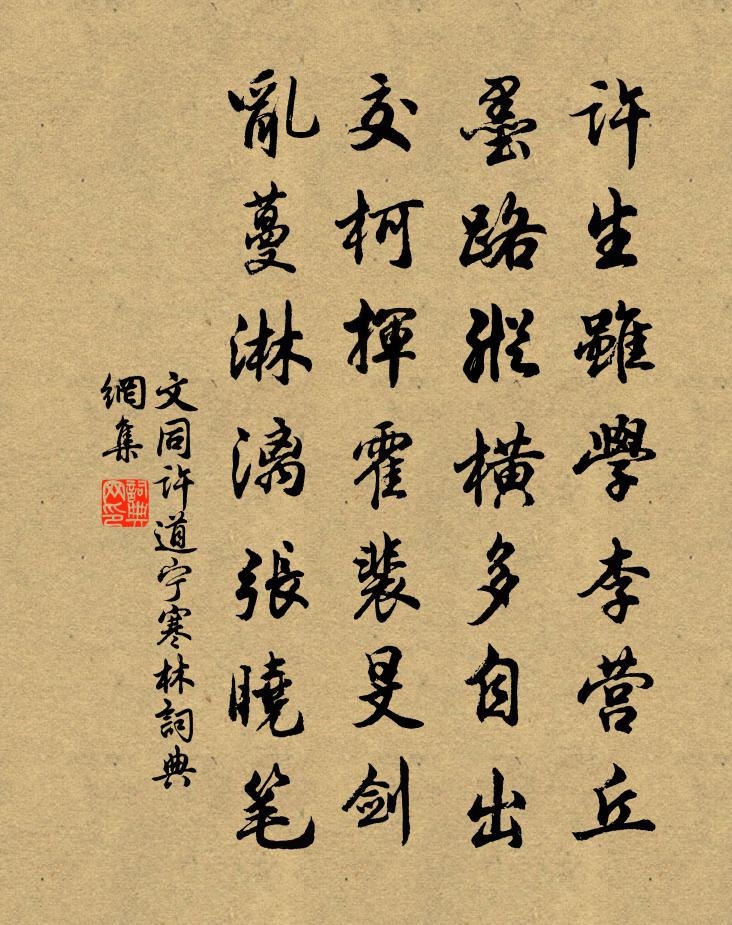 许生雖學李营丘
墨路縱橫多自出
交柯揮霍裴旻劍
亂蔓淋漓張曉笔
文同许道宁寒林詞典
網集
詞典
网印